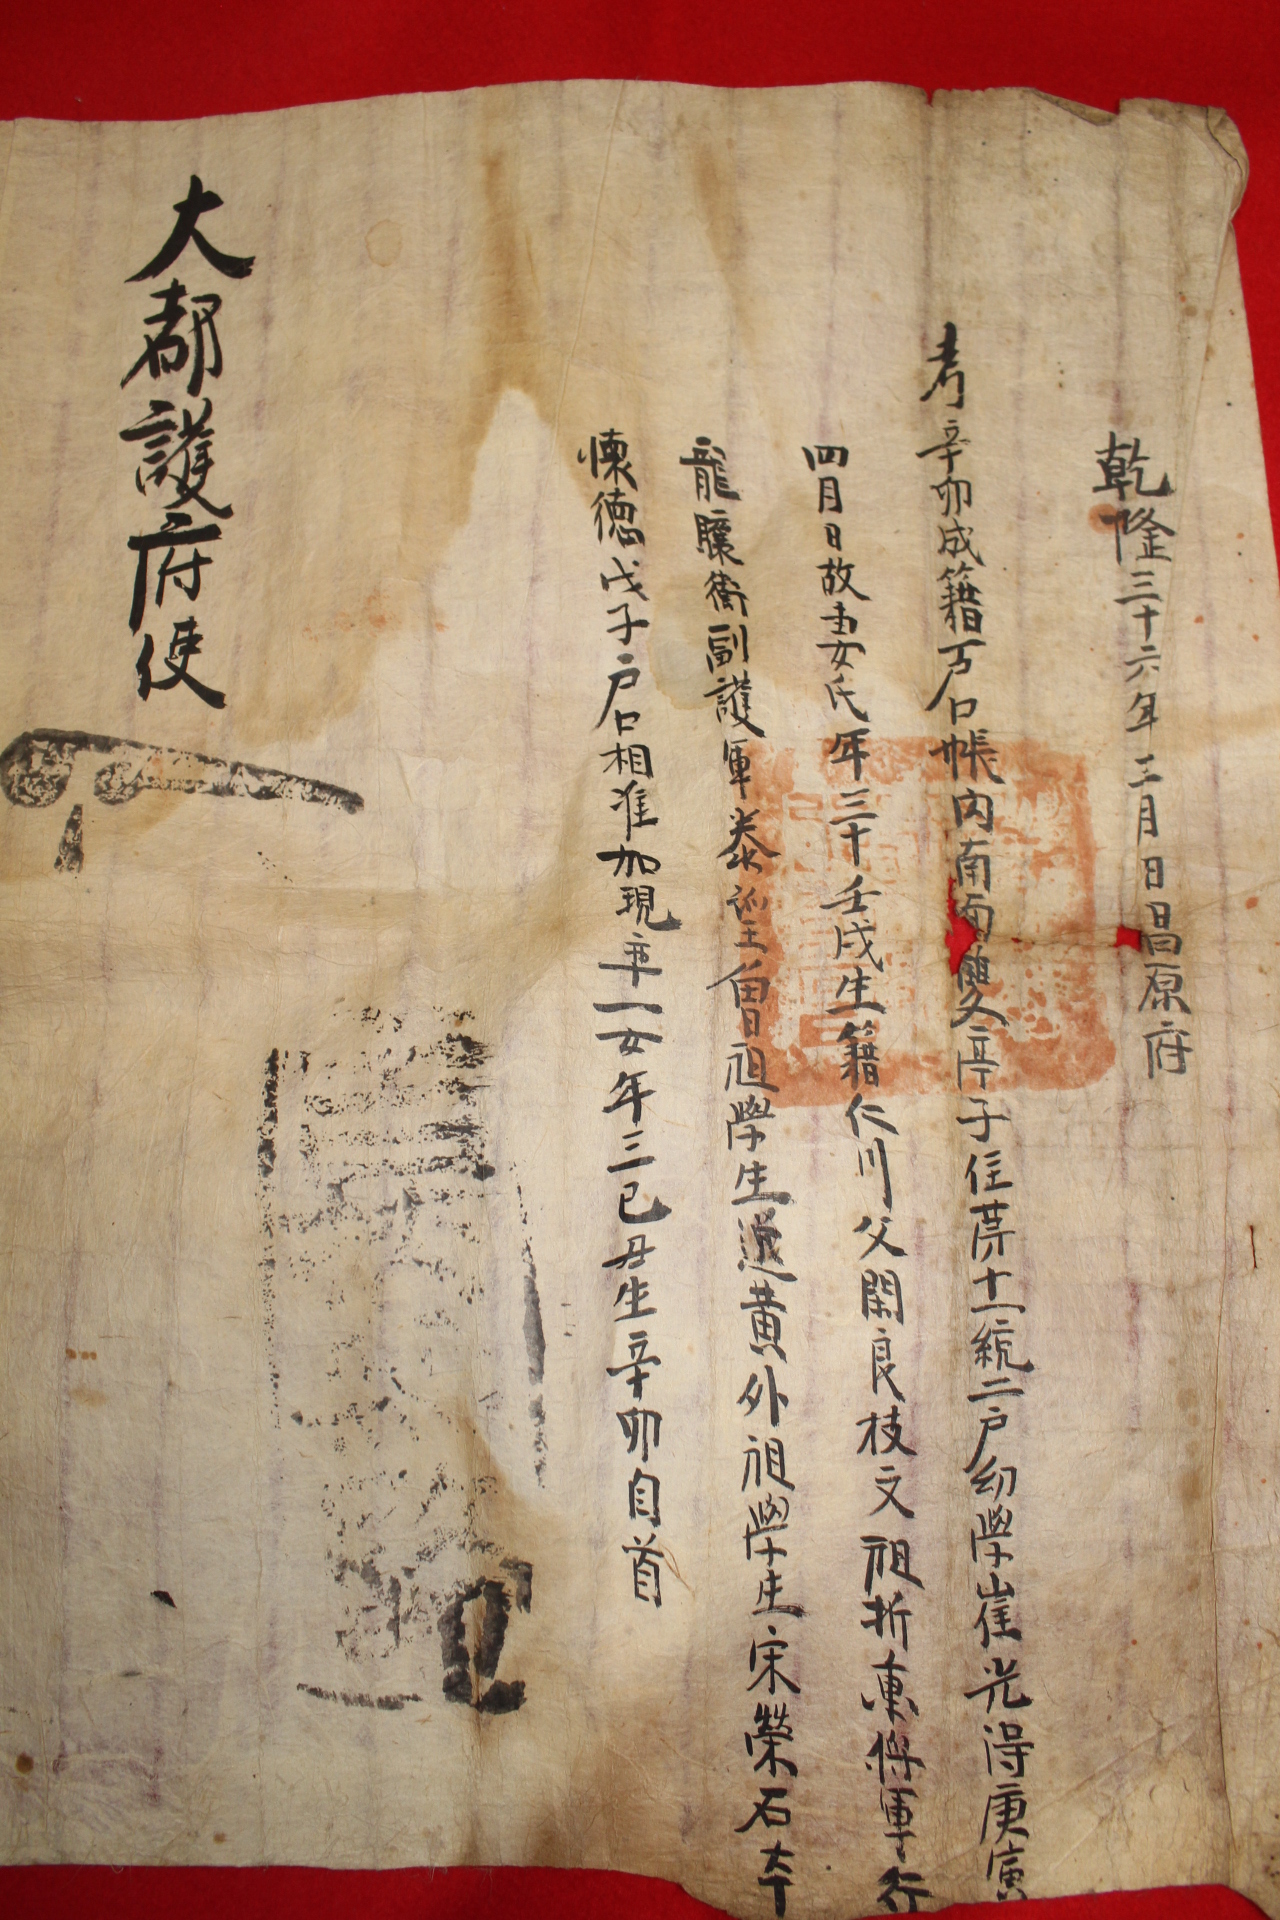 乾隆三十六年二月日昌原府
考辛卯成籍戶口帳內南面雙亭子住第十一統二戶幼學崔光得庚寅
四月日故妻女氏年三十壬戌生籍仁川父閑良枝文祖折衝將軍行
龍驤衛副護軍泰曾祖學生道黃外祖學生宋榮石本
懷德戊子戶口相准加現率一女年三己丑生辛卯自首
大都護府使